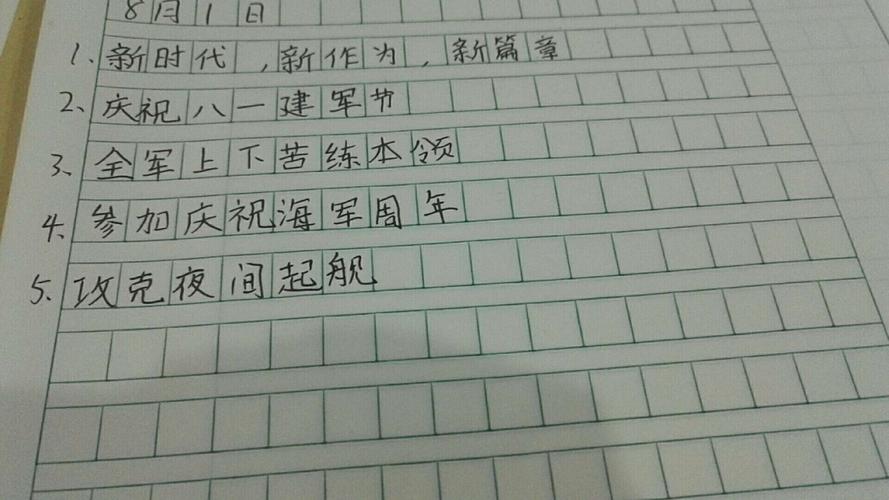 8月1日
1、新时代,新作为,新篇章
2、庆祝八一建军节
3、全军上下苦练本领
4、参加庆祝海军周年
5、攻克夜间起舰